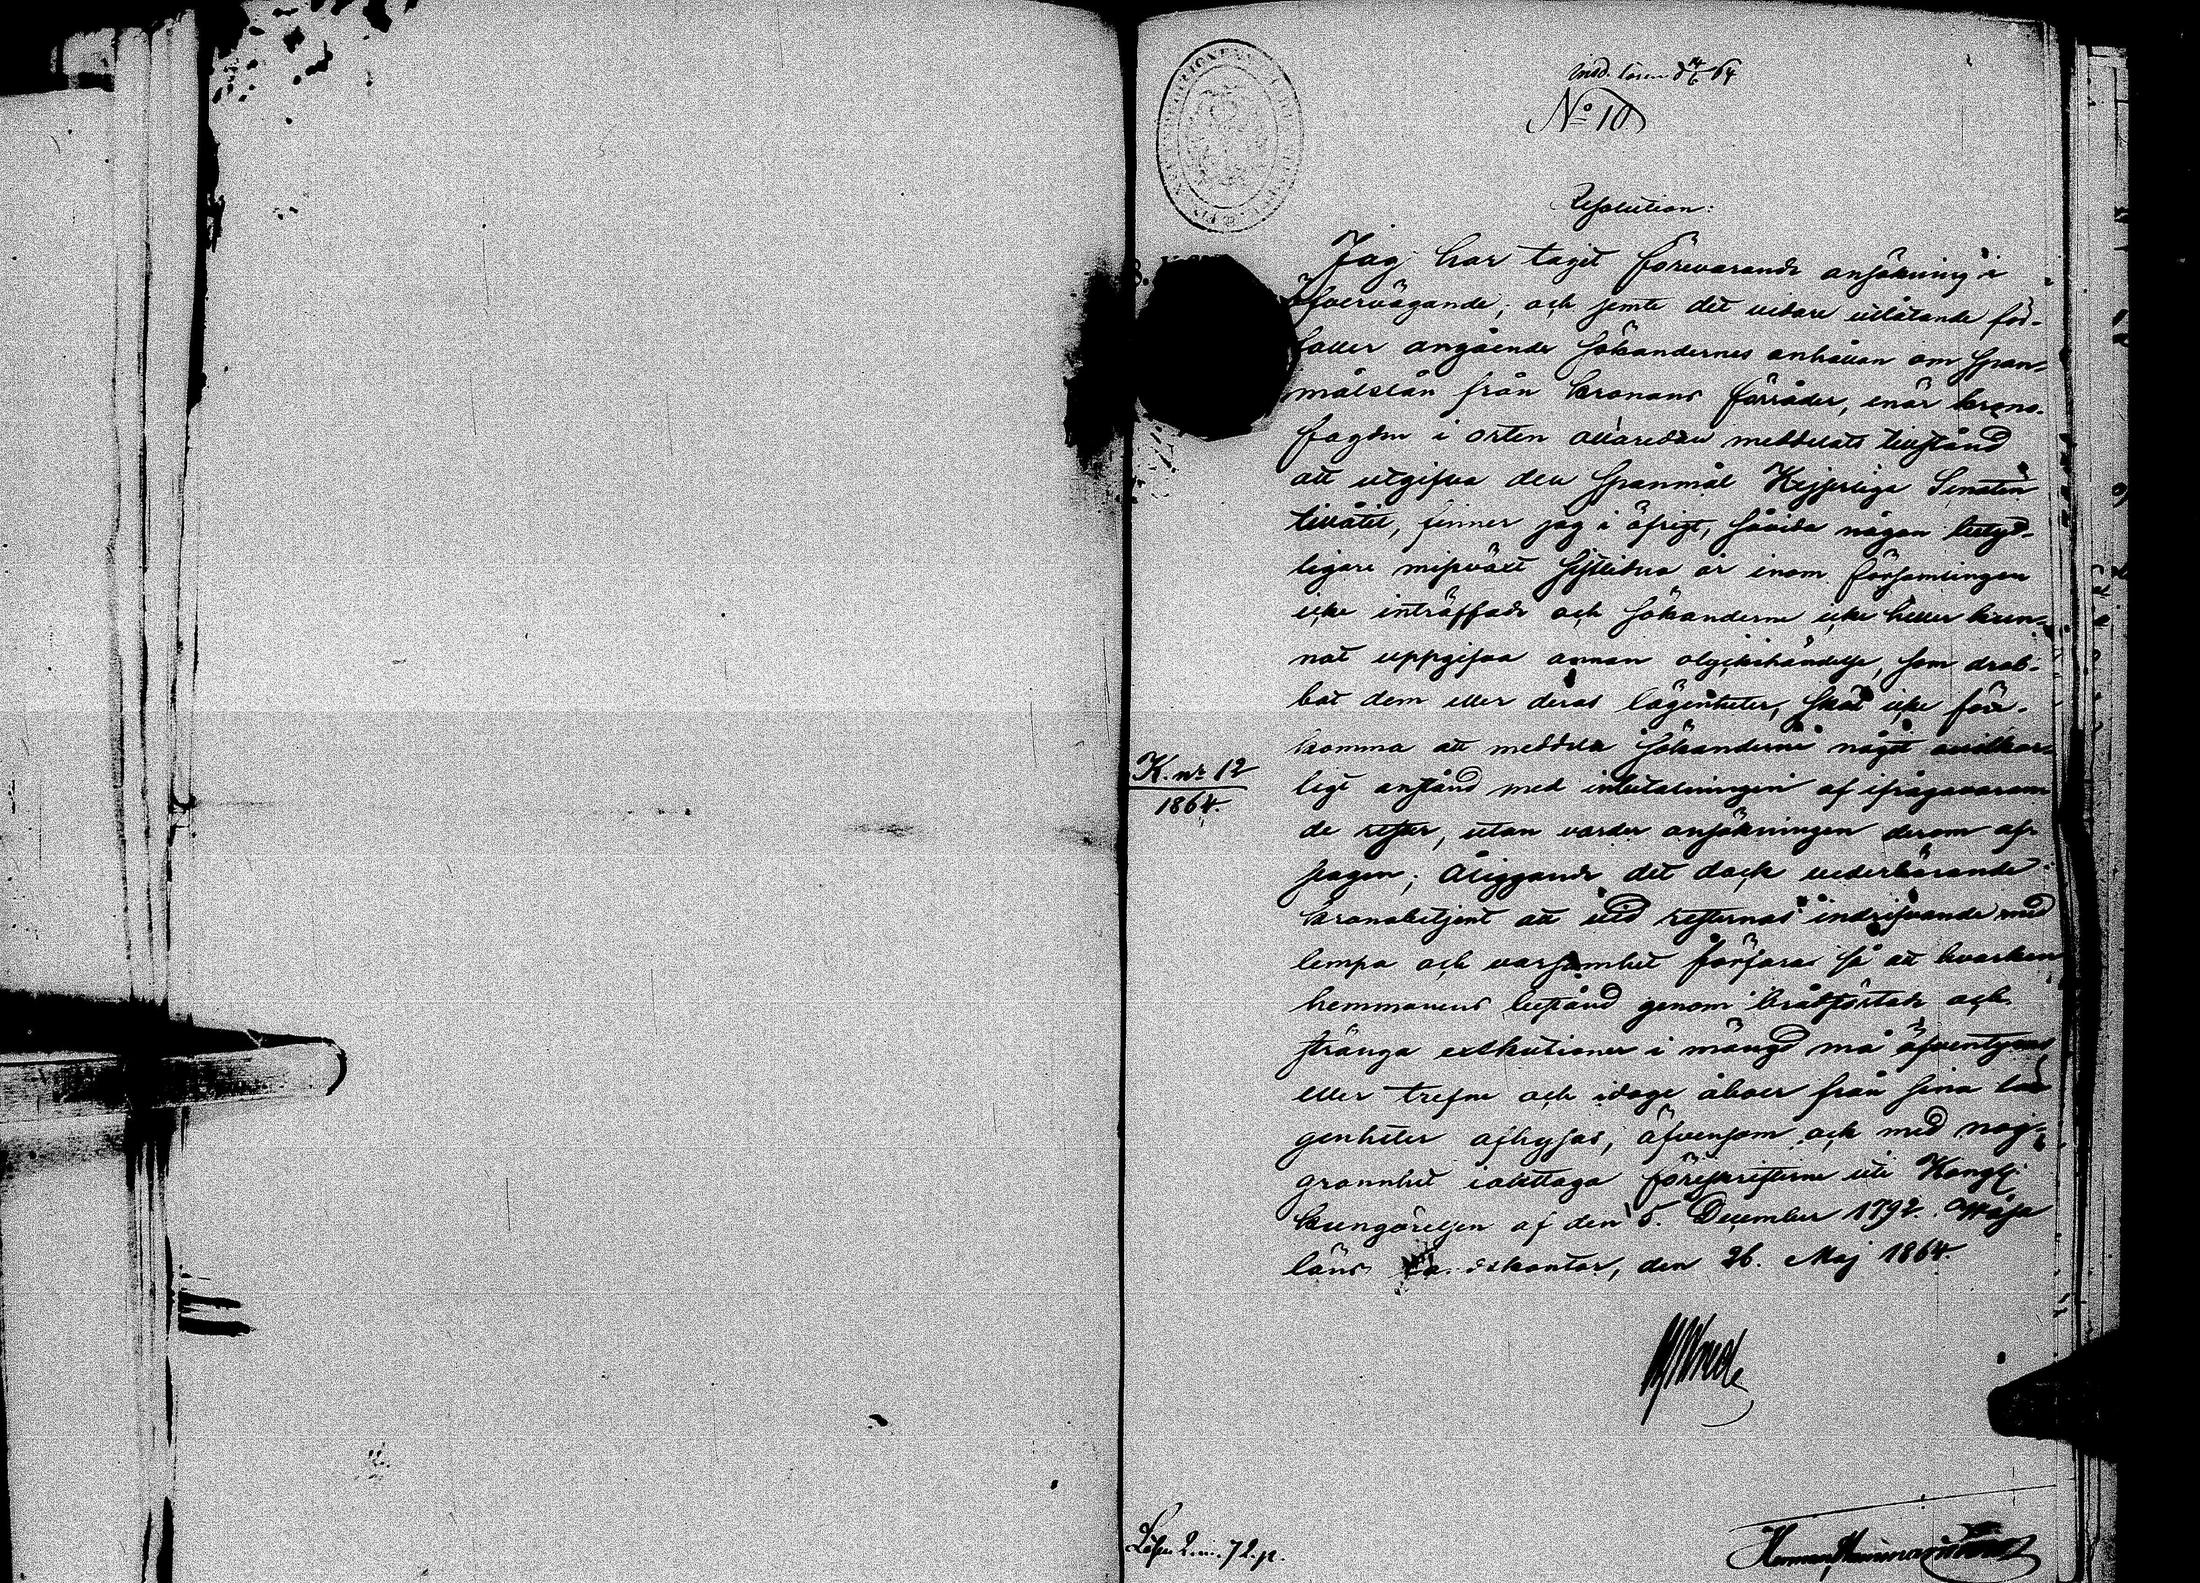 No 10
Resolution:
Jag har tagit förevarande ansökning i
öfvervägande, och jemte det vidare utlåtande för-
faller angående sökandernes anhållan om span-
målslån från kronans förråder, enär krono-
fogden i orten allaredan meddelats tillstånd
att utgifva den spanmål Kejserliga Senaten
tillåtit, finner jag i öfrigt, såvida någon betyd-
ligare missväxt sistlidna år inom församlingen
icke inträffade och sökanderne icke heller kun-
nat uppgifva annan olyckshändelse, som drab-
bat dem eller deras lägenheter, skäl icke före-
komma att meddela sökanderne något ovilkor-
ligt anstånd med inbetalningen af ifrågavaran-
de rester, utan varder ansökningen derom af-
slagen; Åliggande det dock vederbörande
kronobetjent att vid resternas indrifvande med
lempa och varsamhet förfaras så att hvarken
hemmanens bestånd genom brådstörtade och
stränga exekutioner i mängd må äfventyras
eller trefne och idoge åboer från sina lä-
genheter afhysas, äfvensom och med nog-
grannhet iakttaga föreskrifterne uti Kongl.
kungörelsen af den 5. December 1792. Wasa
läns landskontor, den 26. Maj 1864.
K. nr 12
1864.
Wrede
Lösen 2 m. 72 p.